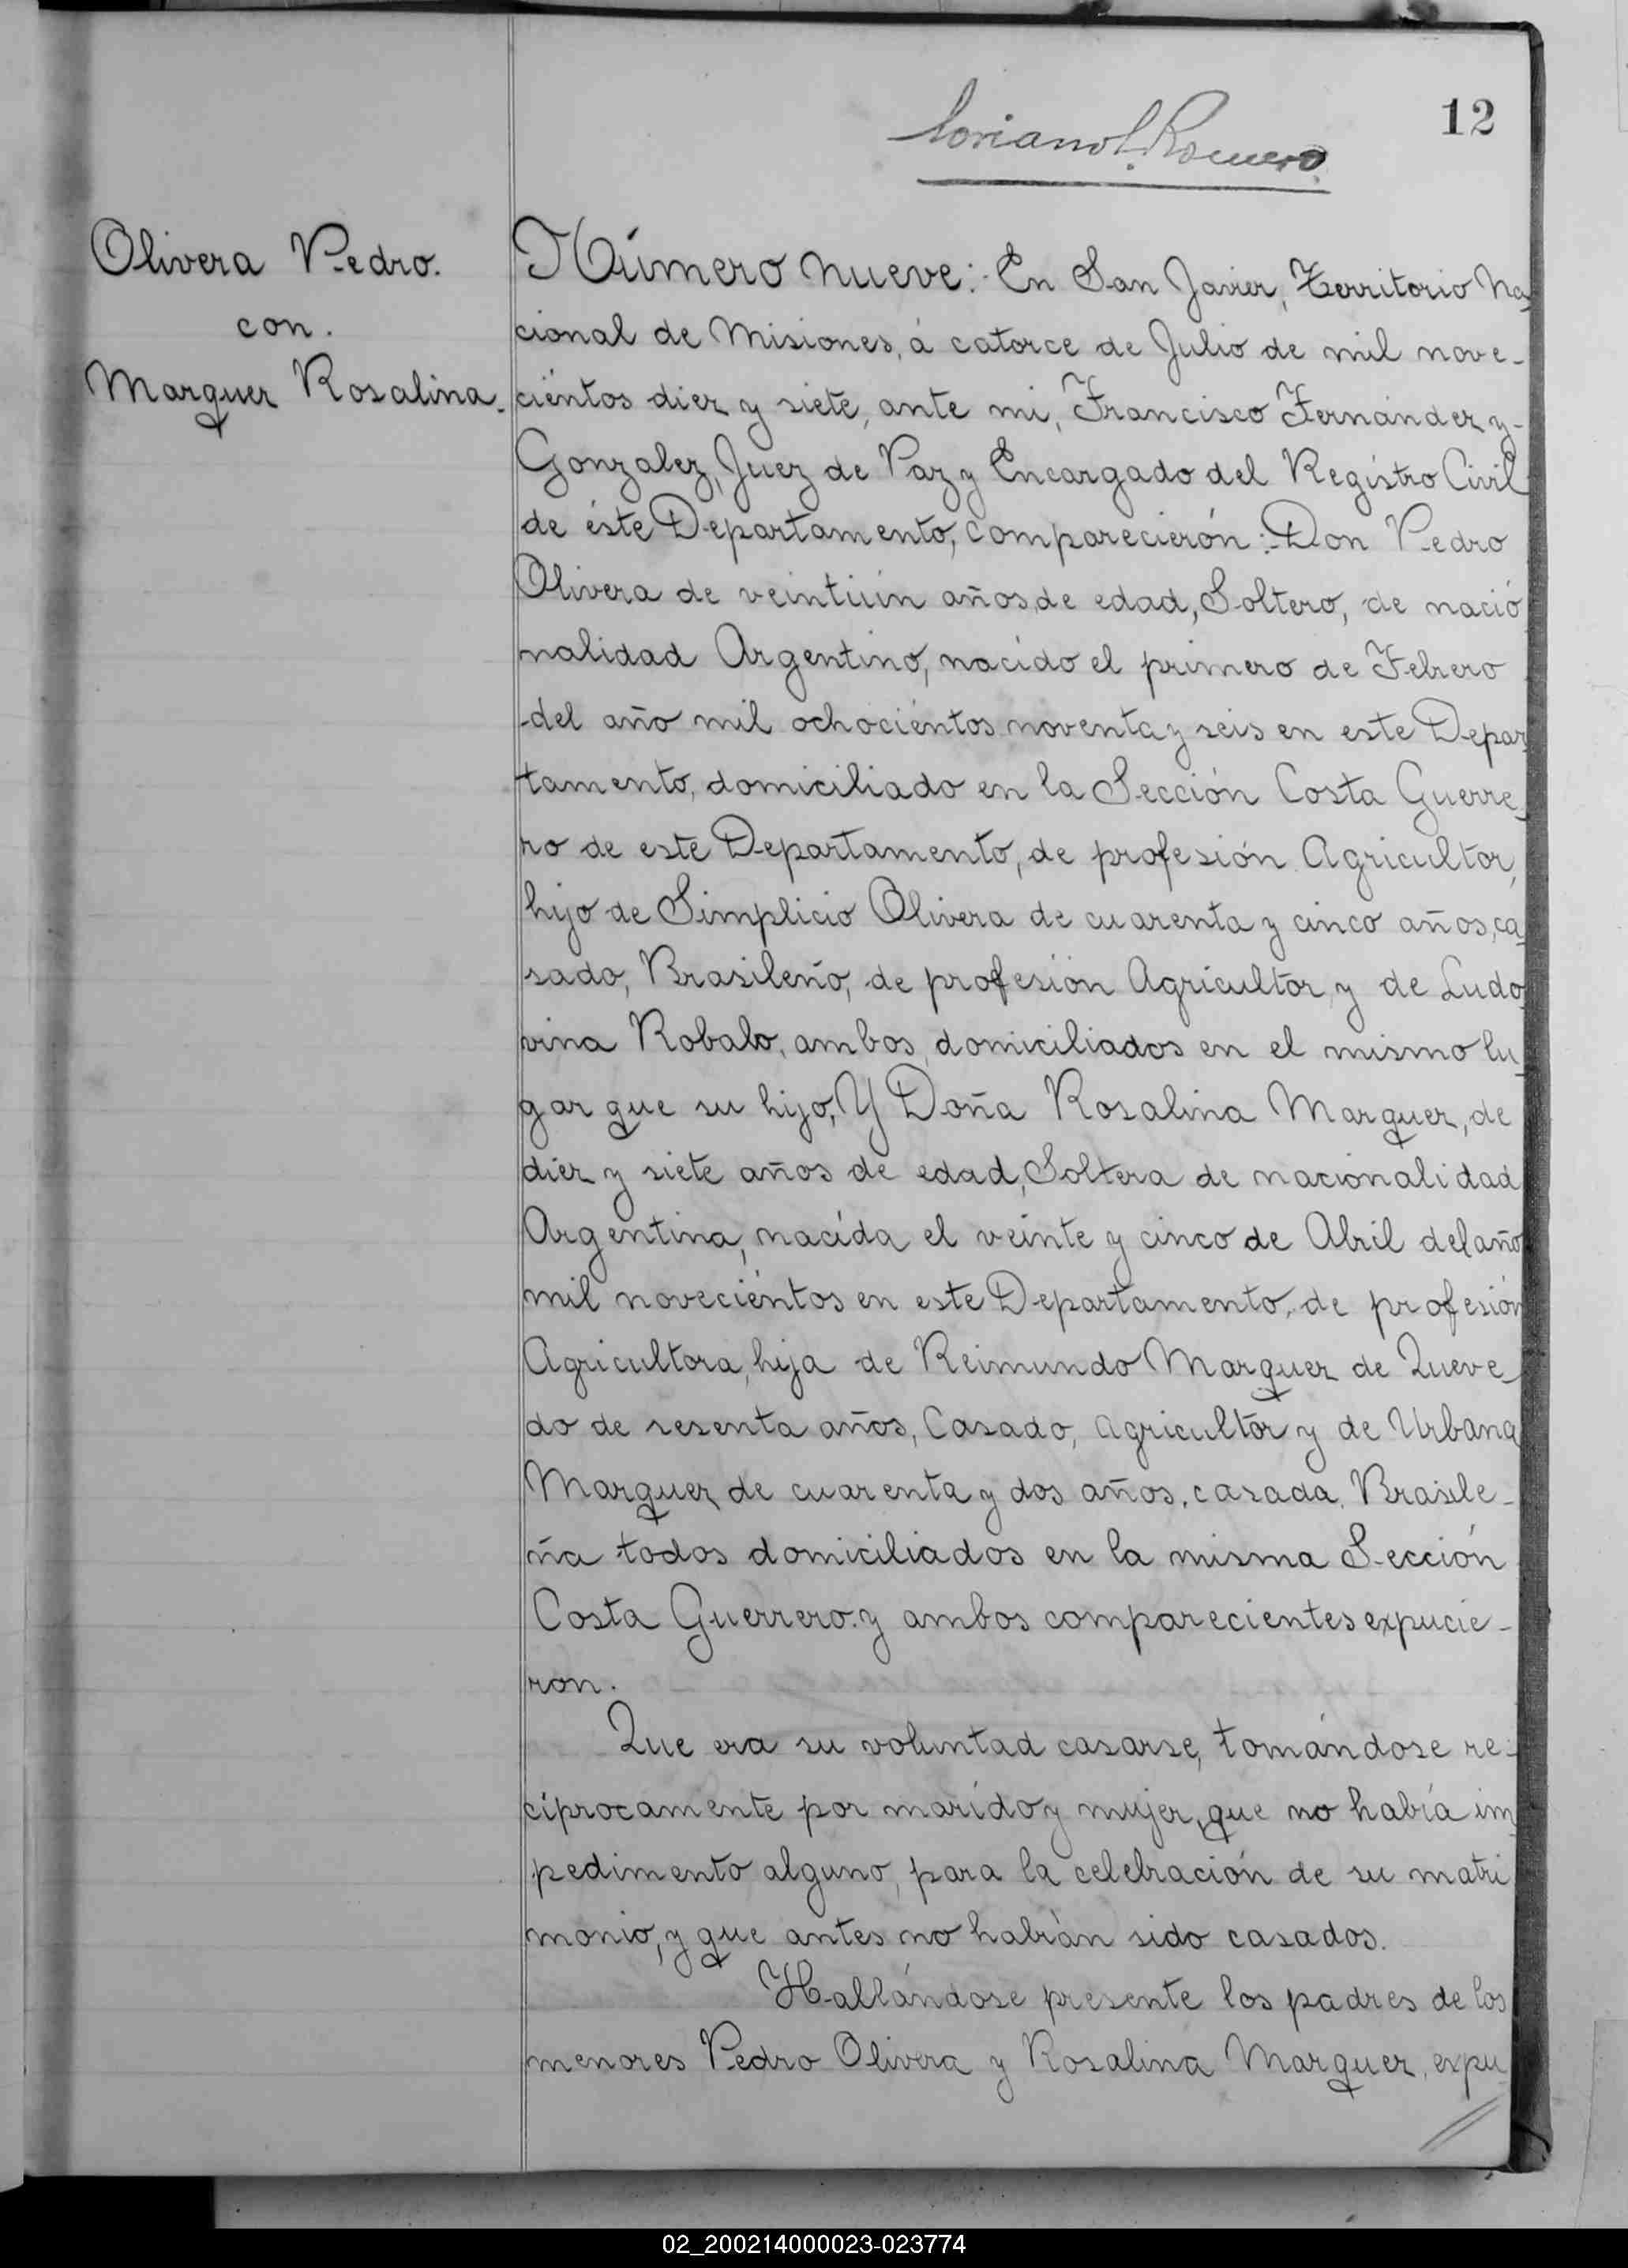 12
Soriano L. Romero
Olivera Pedro.
con.
Marquez Rosalina.
Número nueve: En San Javier, Territorio Na
cional de Misiones, á catorce de Julio de mil nove-
ciéntos diez y siete, ante mi, Francisco Fernández y-
Gonzalez, Juez de Paz y Encargado del Registro Civil
de éste Departamento, comparecierón:-Don Pedro
Olivera de veintiún años de edad, Soltero, de nació
nalidad Argentino, nacido el primero de Febrero
del año mil ochociéntos noventa y seis en este Depar
tamento, domiciliado en la Sección Costa Guerre
ro de este Departamento, de profesión Agricultor,
hijo de Simplicio Olivera de cuarenta y cinco años, ca
sado, Brasileño, de profesión Agricultor y de Ludo
vina Robalo, ambos domiciliados en el mismo lu
gar que su hijo, Y Doña Rosalina Marquez, de
diez y siete años de edad, Soltera de nacionalidad
Argentina, nacída el veinte y cinco de Abril del año
mil noveciéntos en este Departamento, de profesión
Agricultora, hija de Reimundo Marquez de Queve
do de sesenta años, Casado, agricultor y de Urbana
Marquez de cuarenta y dos años, casada, Brasile-
ña todos domiciliados en la misma Sección
Costa Guerrero. y ambos comparecientes expucie-
ron.
Que era su voluntad casarse, tomándose re-
cíprocamente por marido y mujer, que no había im
pedimento alguno, para la celebración de su matri
monio, y que antes no habían sido casados.
Hallándose presente los padres de los
menores Pedro Olivera y Rosalina Marquez, expu
02_200214000023-023774